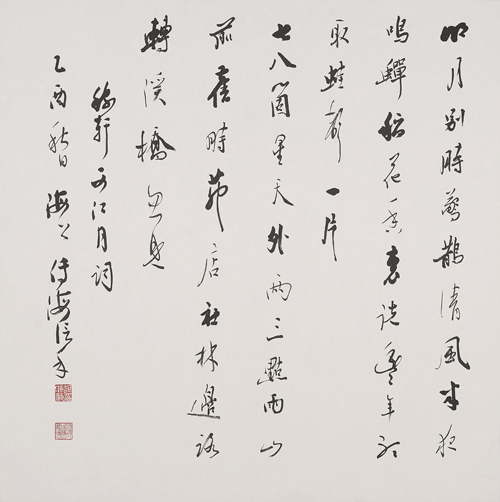 明月別時驚鵲清風半夜
鳴蟬稻花香裏說豐年聽
取蛙聲一片
七八箇星天外兩三點雨山
前舊時茆店社林邊路
轉溪橋忽見
稼軒西江月詞
乙酉秋日海上